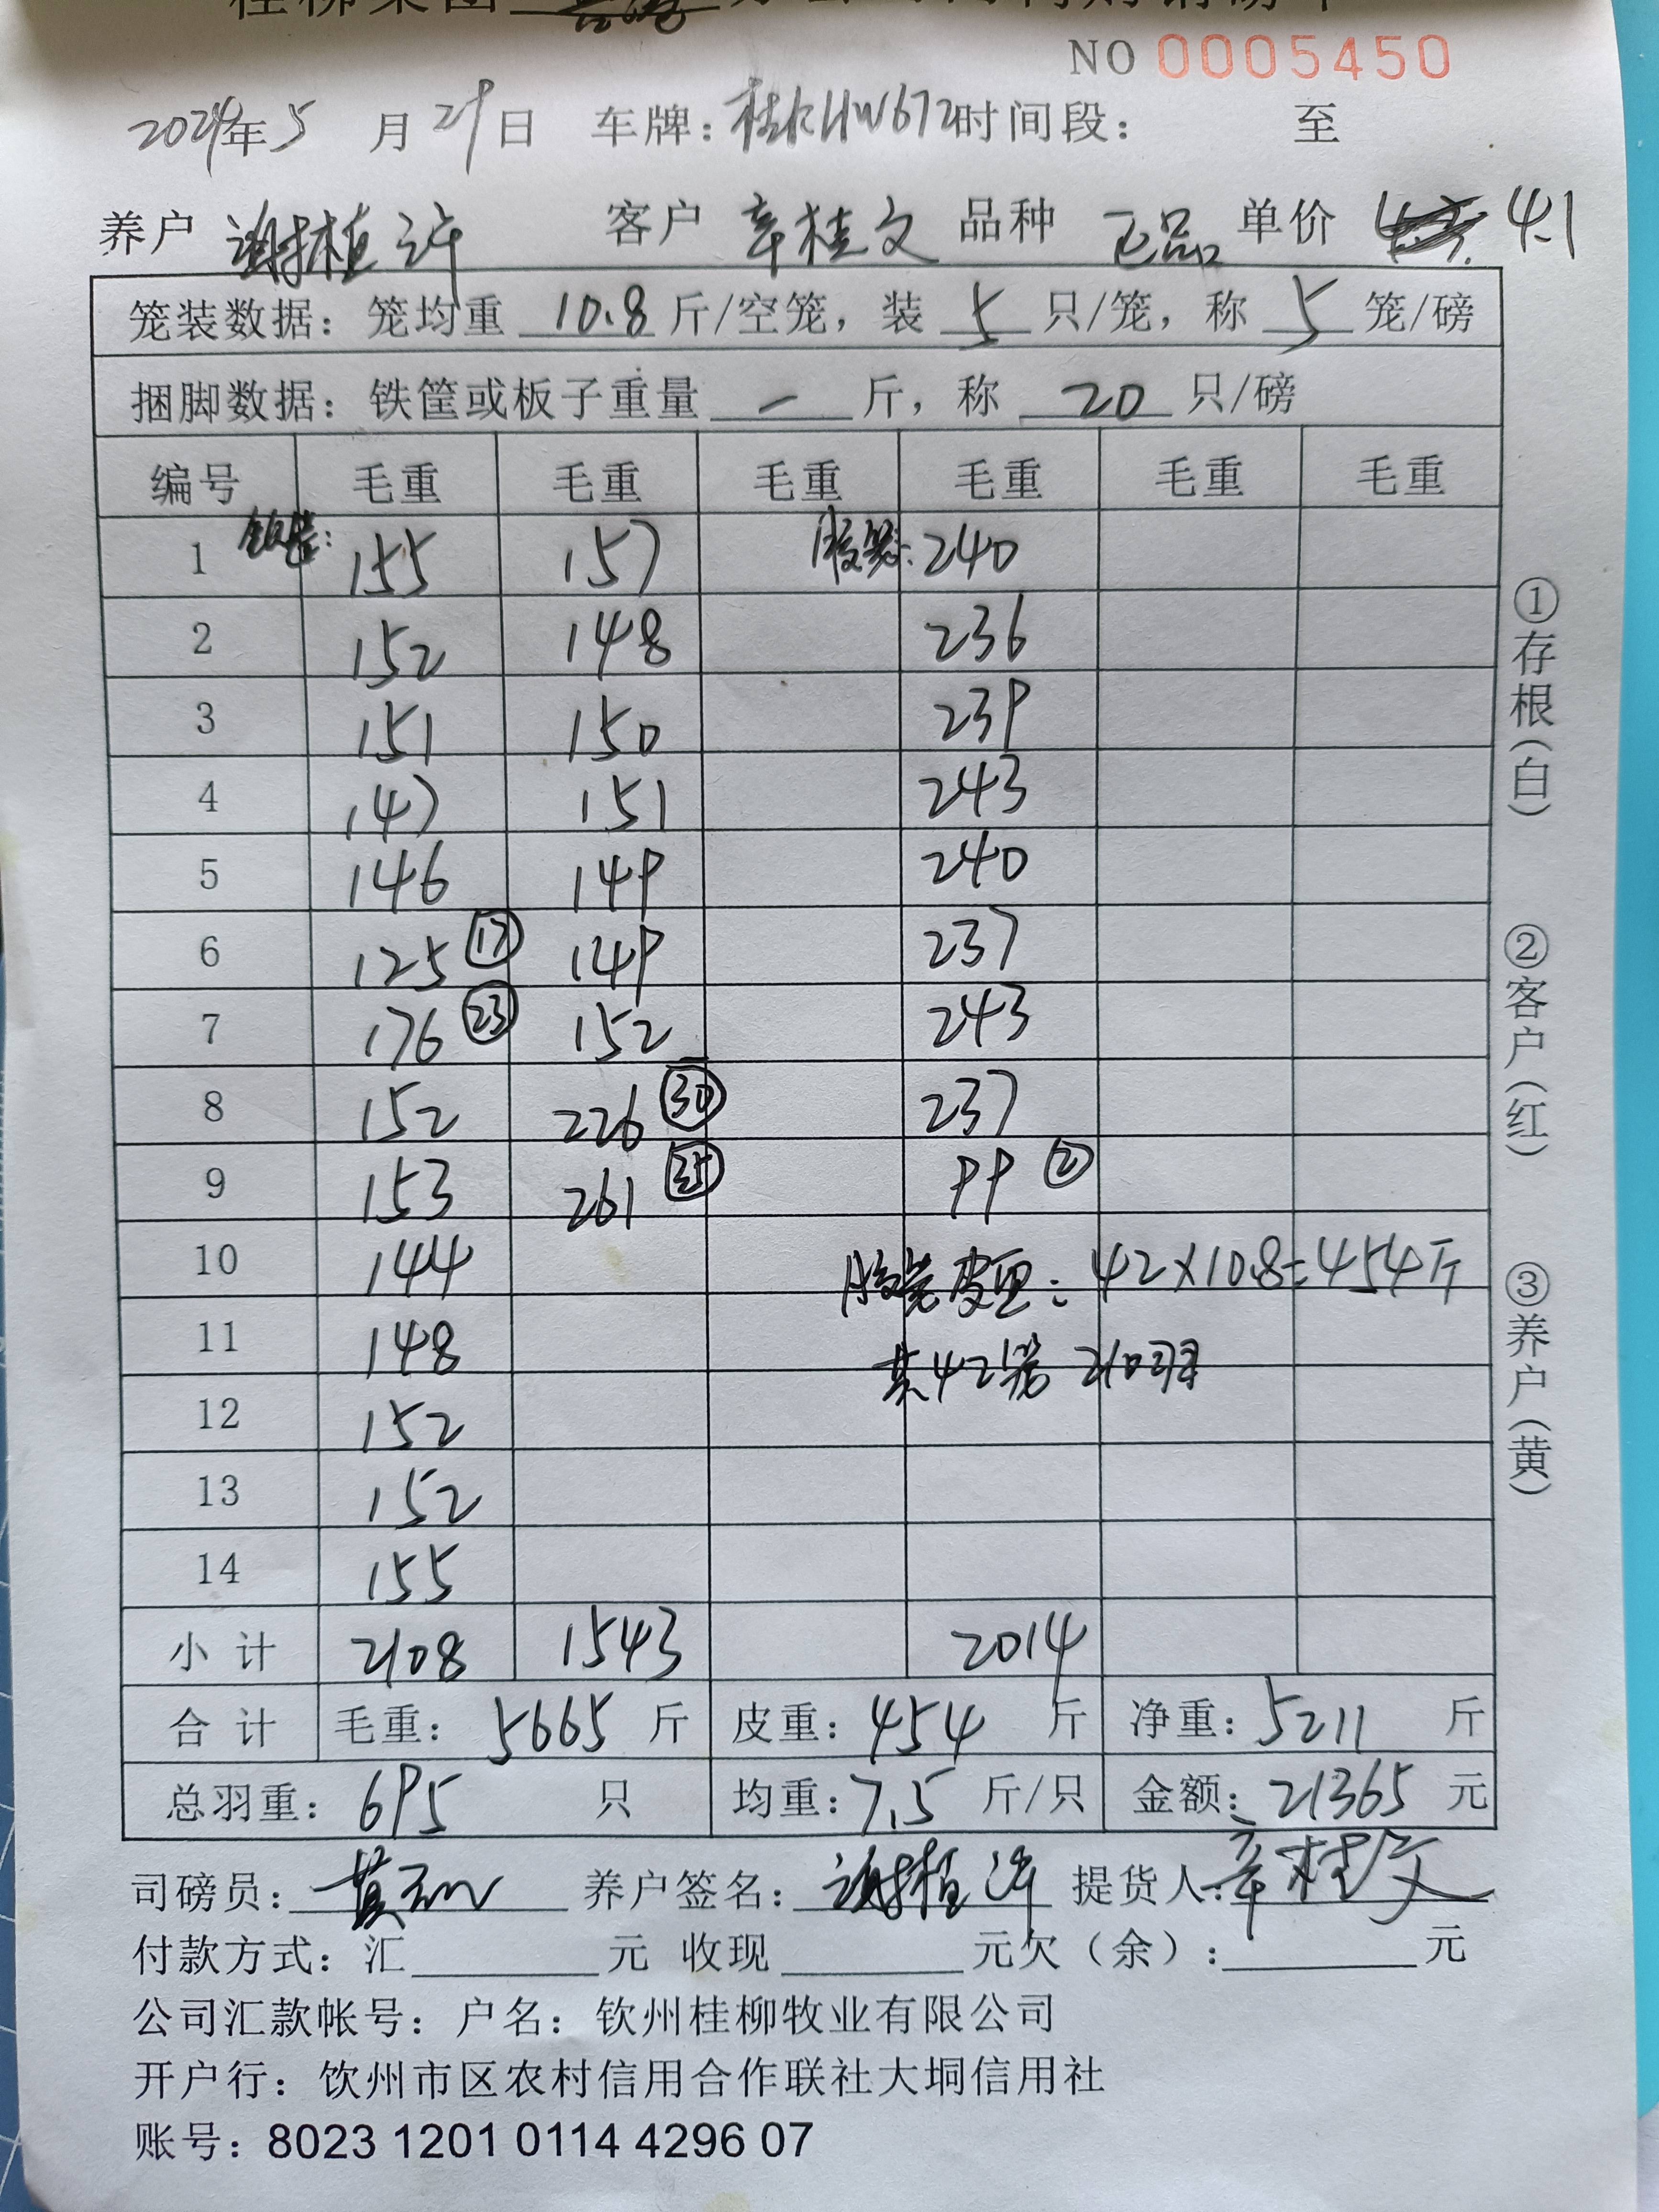 桂柳集团
NO 0005450
2024年5月29日 车牌: 时间段: 至
养户 谢植许 客户 辛桂文 品种 正品 单价 4.1
笼装数据: 笼均重 10.8 斤/空笼, 装 5 只/笼, 称 5 笼/磅
捆脚数据: 铁筐或板子重量 — 斤, 称 20 只/磅
编号 毛重 毛重 毛重 毛重 毛重 毛重
1 155 157 胶笼: 240
2 152 148 236
3 151 150 239
4 147 151 243
5 146 149 240
6 125 ⑰ 149 237
7 176 ㉓ 152 243
8 152 226 ㉚ 237
9 153 261 ㉟ 99 ②
10 144 胶笼皮重: 42×10.8=454斤
11 148 共42笼 210羽
12 152
13 152
14 155
小计 2108 1543 2014
合计 毛重: 5665 斤 皮重: 454 斤 净重: 5211 斤
总羽重: 695 只 均重: 7.5 斤/只 金额: 21365 元
司磅员: 养户签名: 谢植许 提货人: 辛桂文
付款方式: 汇 元 收现 元欠(余): 元
公司汇款帐号: 户名: 钦州桂柳牧业有限公司
开户行: 钦州市区农村信用合作联社大垌信用社
账号: 8023 1201 0114 4296 07
①存根(白) ②客户(红) ③养户(黄)